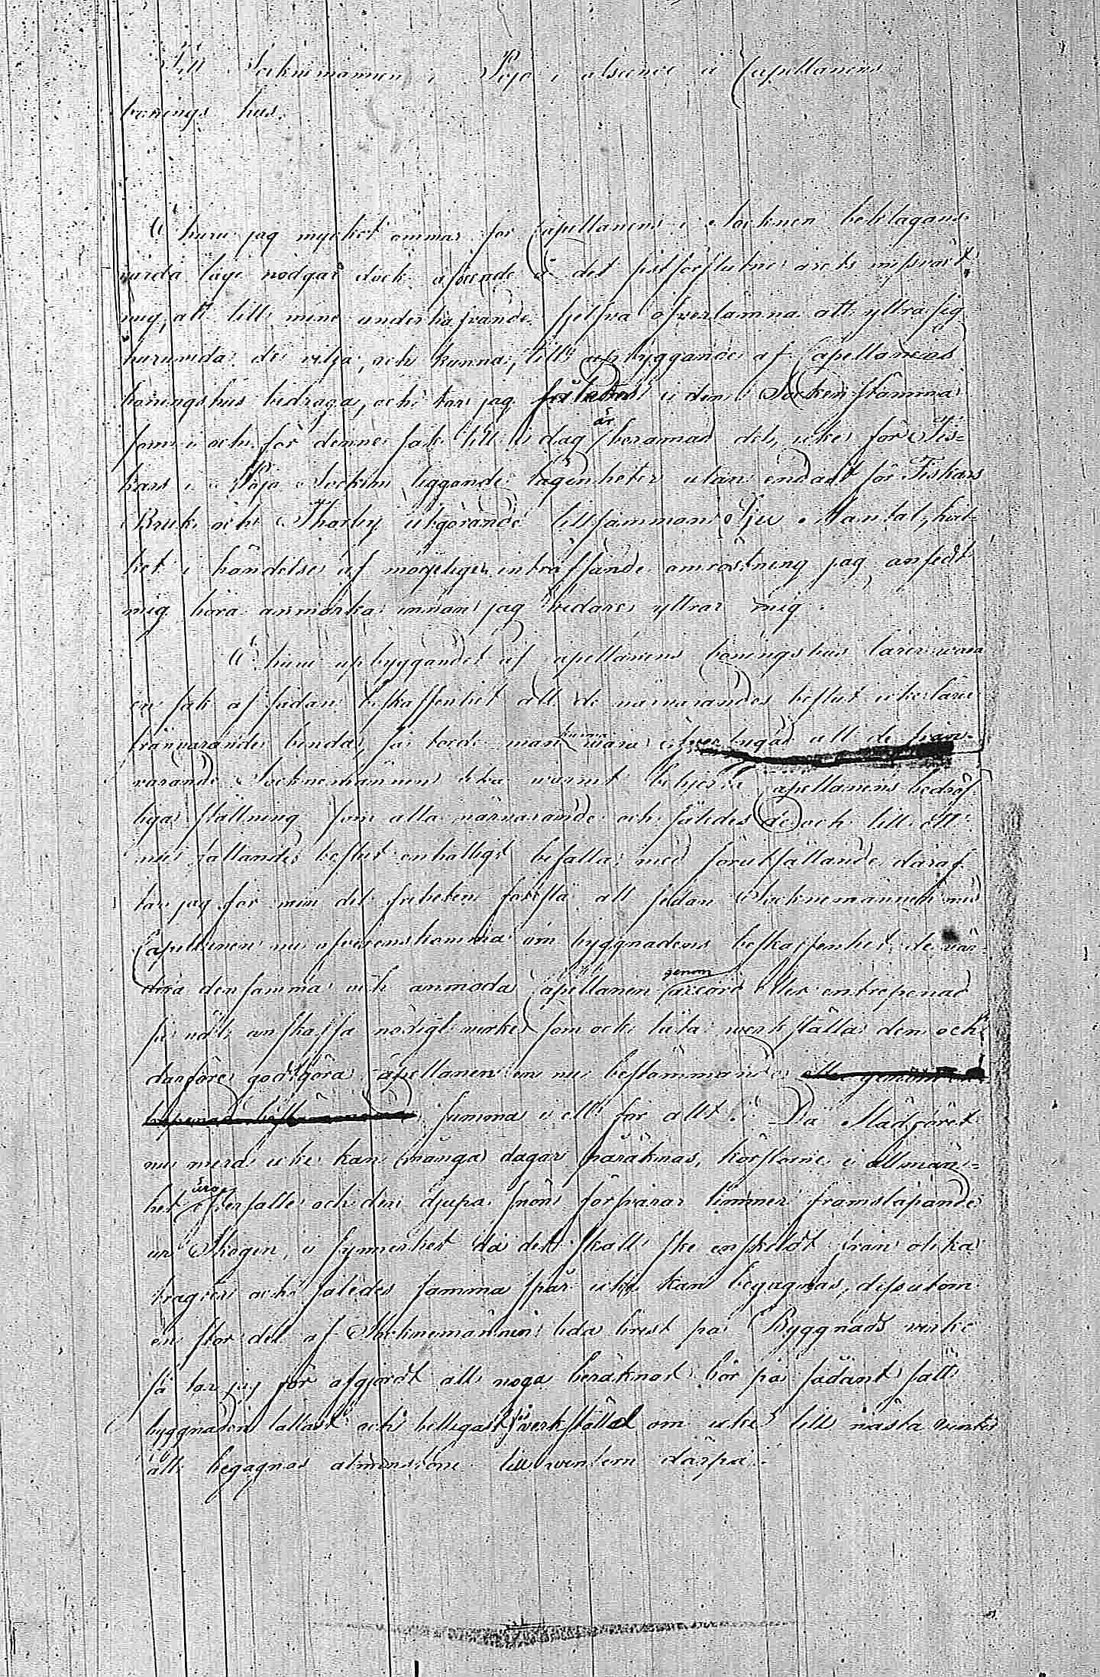 Till Socknemännen i Pojo i afseende å Capellanens
bonings hus.
E huru jag mycket ömmar för Capellanens i Socknen beklagans
värda läge nödgas dock afseende å det sistförflutne årets missväxt
mig, att till mine underhafvande sjelfva öfverlämna att yttra sig
huruvida de vilja, och kunna, till upbyggande af Capellanens
boningshus bidraga, och tar jag i den Sockenstämma
som i och för denne sak till i dag är berammad del, icke för Fis-
kars i Pojo Socken liggande lägenheter utan endast för Fiskars
Bruk och Thorby utgörande tillsammans sju Mantal, hvil-
ket i händelse af möjeligen inträffande omröstning jag ansedt
mig böra anmärka innan jag vidare yttrar mig.
E huru upbyggandet af Capellanens boningshus lärer vara
en sak af sådan beskaffenhet att de närvarandes beslut icke lärer
frånvarande binda, så torde man kunna vara öfvertygad att de från-
varande Socknemännen lika warmt behjerta Capellanens bedröf-
liga ställning som alla närvarande och således de och till ett
nu fallande beslut enhälligt bifalla; med förutsättande däraf
tar jag för min del friheten föreslå att sedan Socknemännen med
Capellanen nu öfverenskomma om byggnadens beskaffenhet, de vär-
dera densamma och anmoda Capellanen genom accord eller entreprenad
få udt anskaffa nödigt wirke som ock låta werkställa den och
därföre godtgöra Capellanen en nu bestämmande
summa i ett för allt. Då Slädföret
nu mera icke kan många dagar påräknas, körslorne i allmän-
het äro förfalle och den djupa snön försvårar timmer framsläpande
ur Skogen, i synnerhet då det skall ske enskildt från olika
tragter och således samma spår icke kan begagnas, dessutom
en stor del af Socknemännen lida brist på Byggnads wirke
så tar jag för afgjordt att noga beräknat bör på sådant sätt
byggnaden lättast och billigast fås werkställd om icke till nästa winter
att begagnas åtminstone till wintern därpå.